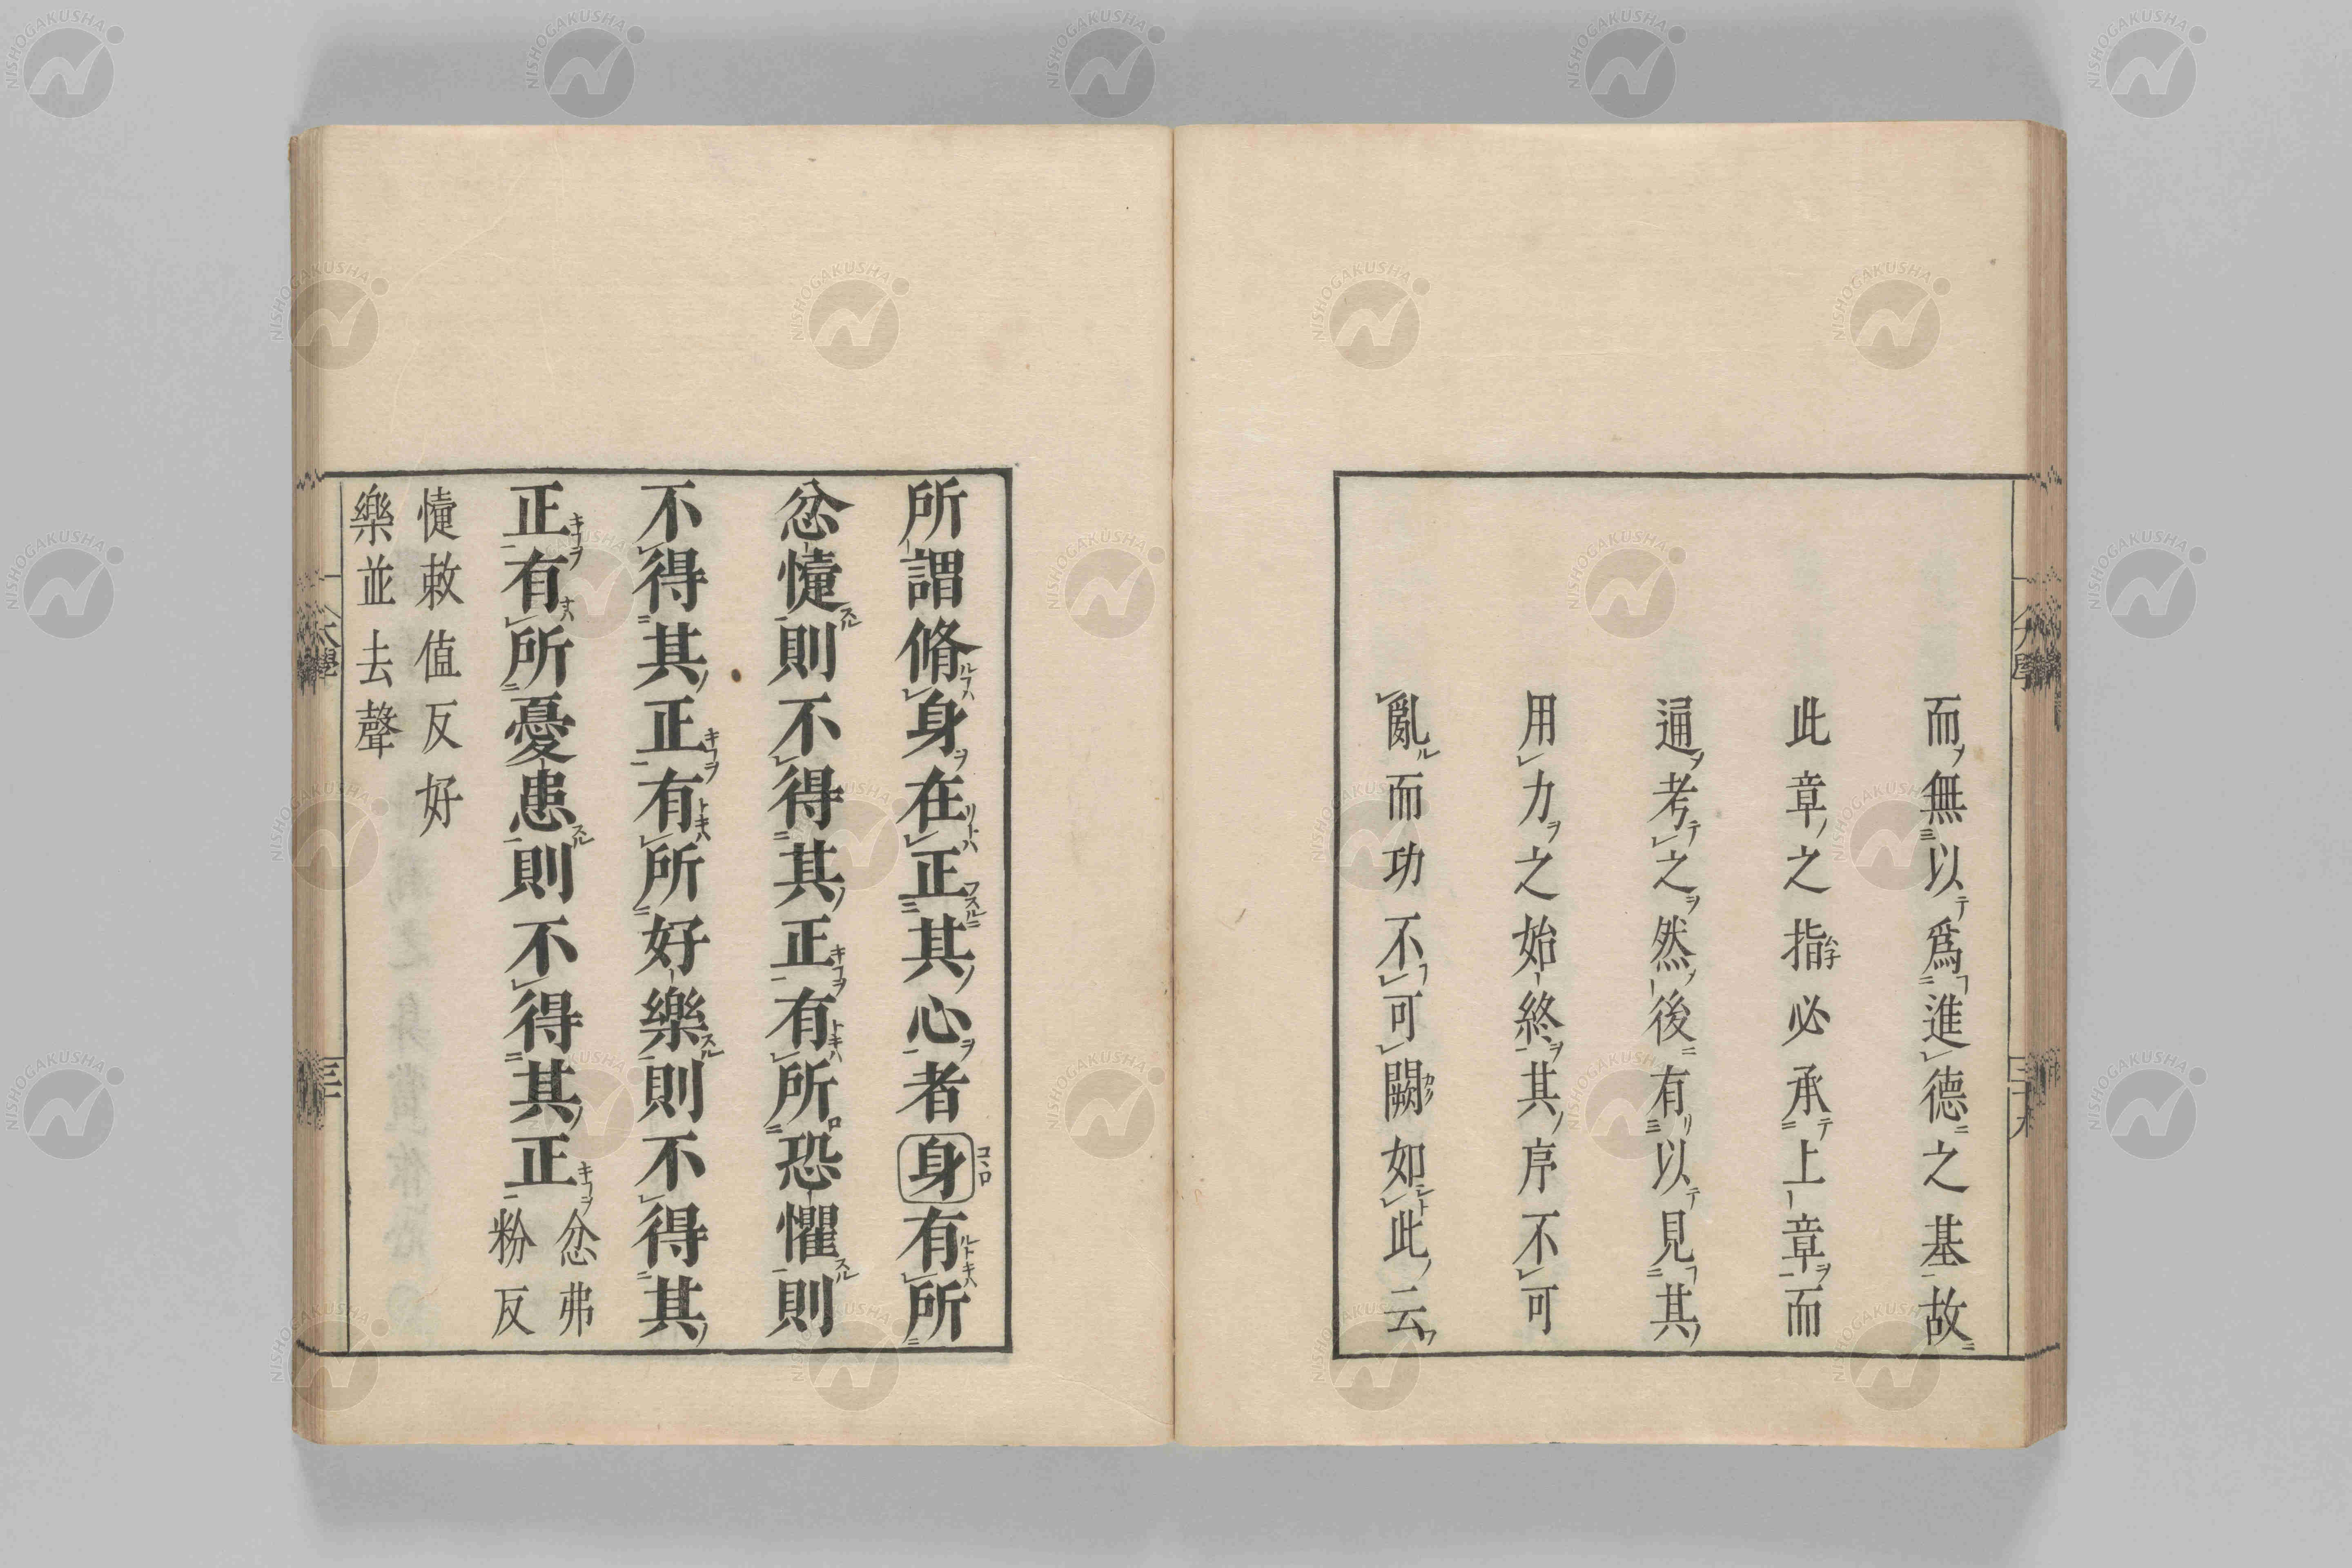 而無以爲進德之基故
此章之指必承上章而
通考之然後有以見其
用力之始終其序不可
亂而功不可闕如此云
所謂脩身在正其心者身有所
忿懥則不得其正有所恐懼則
不得其正有所好樂則不得其
正有所憂患則不得其正忿弗
粉反
懥敕值反好
樂並去聲
大學
NISHOGAKUSHA